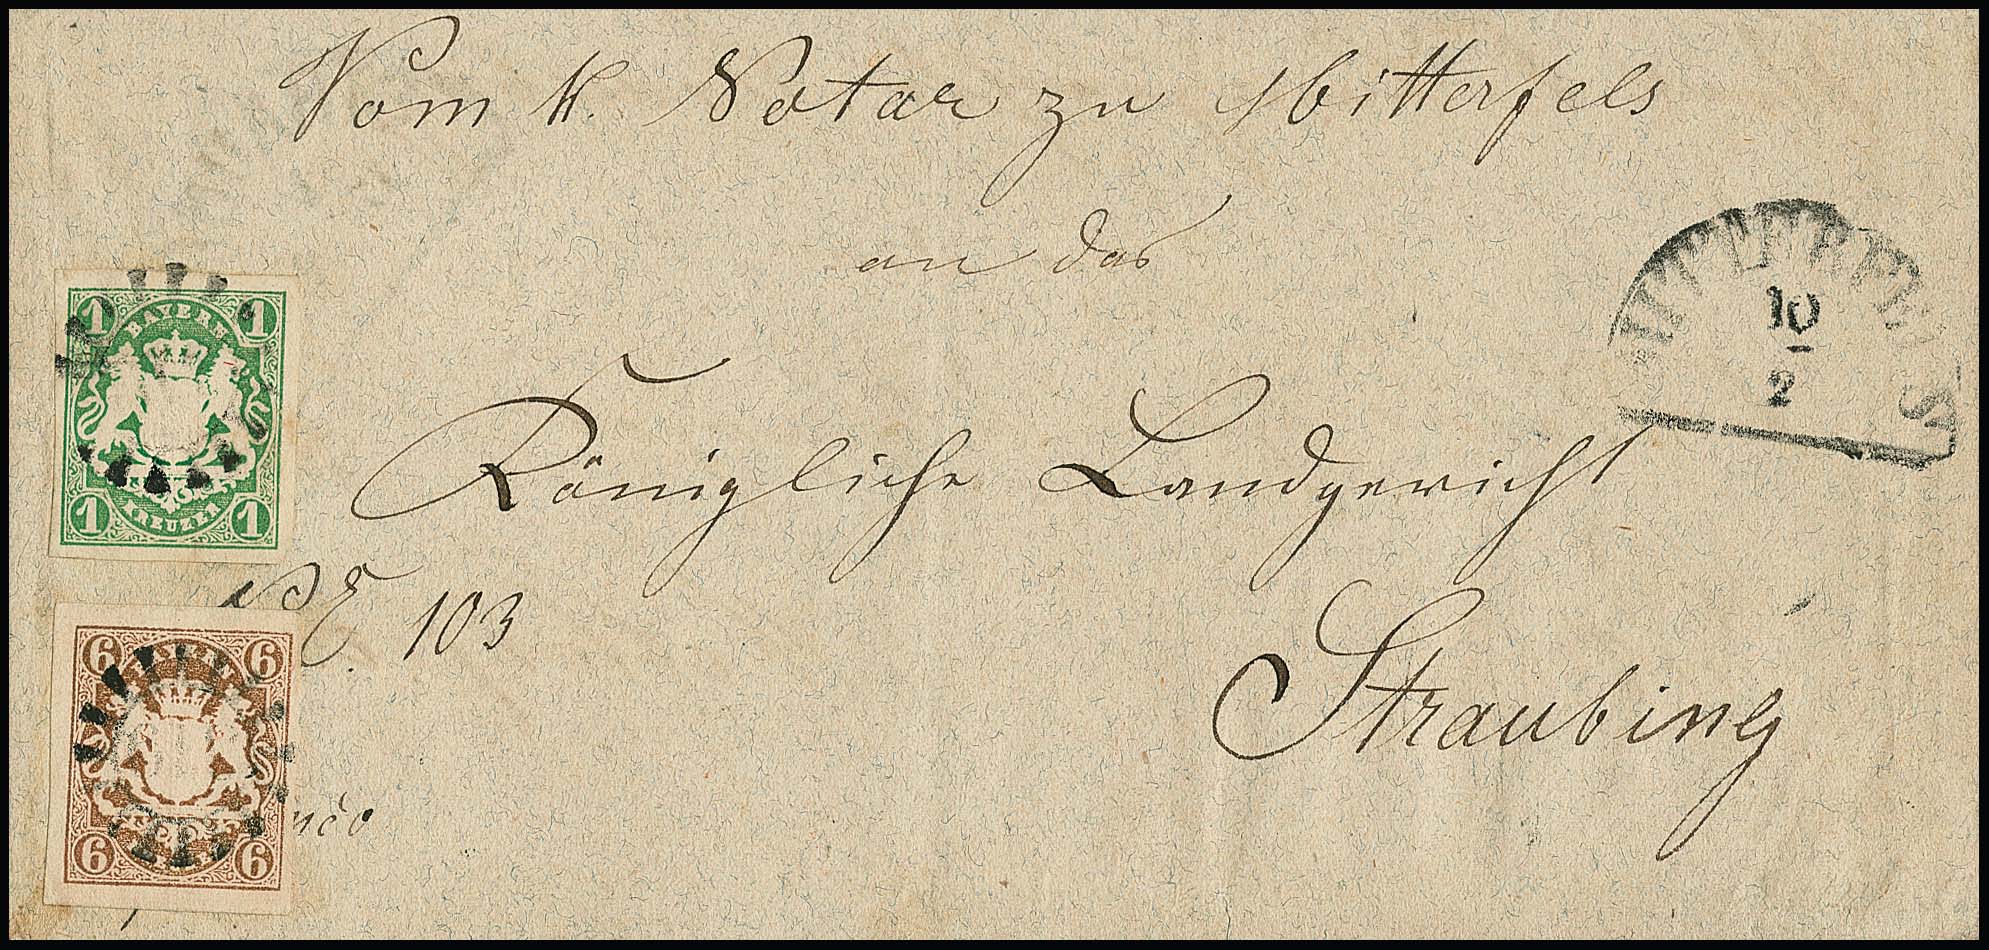 Vom K. Notar zu Mitterfels
an das
MITTERFELS
10
2
1 1
BAYERN
KREUZER
1 1
Königliche Landgericht
E. 103
6 6
BAYERN
6 6
Straubing